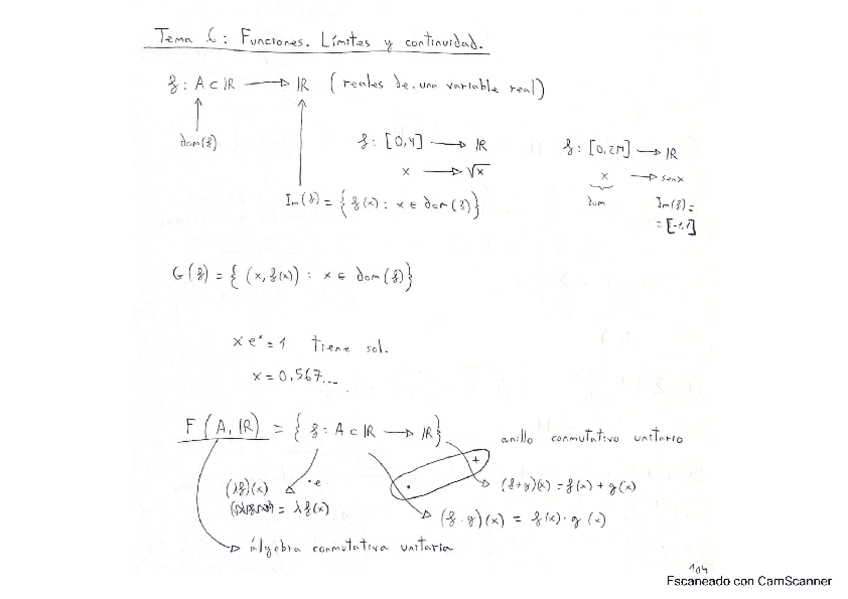 Tema 6: Funciones. Límites y continuidad.
f: A ⊂ ℝ → ℝ (reales de una variable real)
dom(f)
f: [0,4] → ℝ
x → √x
f: [0,2π] → ℝ
x → senx
dom
Im(f) =
= [-1,1]
Im(f) = { f(x) : x ∈ dom(f) }
G(f) = { (x, f(x)) : x ∈ dom(f) }
x eˣ = 1 tiene sol.
x = 0,567...
F(A, ℝ) = { f: A ⊂ ℝ → ℝ } anillo conmutativo unitario
+
·
(f+g)(x) = f(x) + g(x)
·e
(λf)(x)
= λf(x)
(f·g)(x) = f(x)·g(x)
álgebra conmutativa unitaria
104
Escaneado con CamScanner